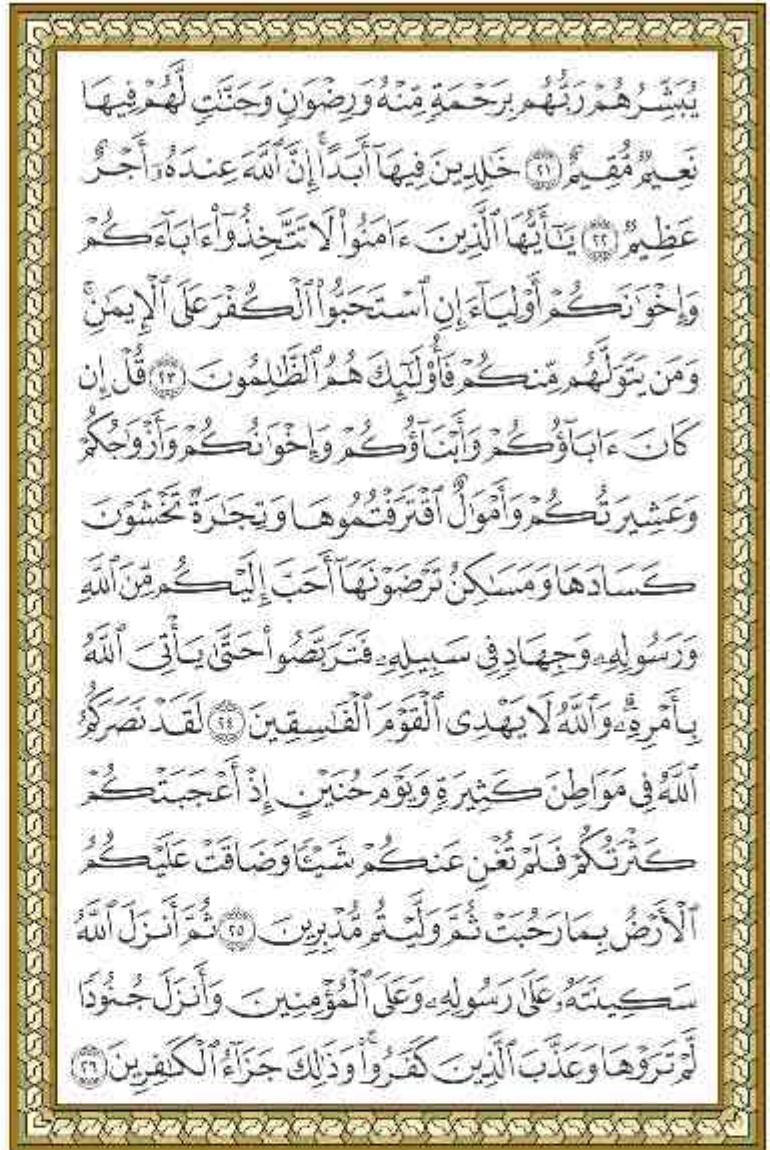 يُبَشِّرُهُمْ رَبُّهُم بِرَحْمَةٍ مِّنْهُ وَرِضْوَٰنٍ وَجَنَّٰتٍ لَّهُمْ فِيهَا
نَعِيمٌ مُّقِيمٌ ۝٢١ خَٰلِدِينَ فِيهَآ أَبَدًا ۚ إِنَّ ٱللَّهَ عِندَهُۥٓ أَجْرٌ
عَظِيمٌ ۝٢٢ يَٰٓأَيُّهَا ٱلَّذِينَ ءَامَنُوا۟ لَا تَتَّخِذُوٓا۟ ءَابَآءَكُمْ
وَإِخْوَٰنَكُمْ أَوْلِيَآءَ إِنِ ٱسْتَحَبُّوا۟ ٱلْكُفْرَ عَلَى ٱلْإِيمَٰنِ ۚ
وَمَن يَتَوَلَّهُم مِّنكُمْ فَأُو۟لَٰٓئِكَ هُمُ ٱلظَّٰلِمُونَ ۝٢٣ قُلْ إِن
كَانَ ءَابَآؤُكُمْ وَأَبْنَآؤُكُمْ وَإِخْوَٰنُكُمْ وَأَزْوَٰجُكُمْ
وَعَشِيرَتُكُمْ وَأَمْوَٰلٌ ٱقْتَرَفْتُمُوهَا وَتِجَٰرَةٌ تَخْشَوْنَ
كَسَادَهَا وَمَسَٰكِنُ تَرْضَوْنَهَآ أَحَبَّ إِلَيْكُم مِّنَ ٱللَّهِ
وَرَسُولِهِۦ وَجِهَادٍ فِى سَبِيلِهِۦ فَتَرَبَّصُوا۟ حَتَّىٰ يَأْتِىَ ٱللَّهُ
بِأَمْرِهِۦ ۗ وَٱللَّهُ لَا يَهْدِى ٱلْقَوْمَ ٱلْفَٰسِقِينَ ۝٢٤ لَقَدْ نَصَرَكُمُ
ٱللَّهُ فِى مَوَاطِنَ كَثِيرَةٍ وَيَوْمَ حُنَيْنٍ إِذْ أَعْجَبَتْكُمْ
كَثْرَتُكُمْ فَلَمْ تُغْنِ عَنكُمْ شَيْـًٔا وَضَاقَتْ عَلَيْكُمُ
ٱلْأَرْضُ بِمَا رَحُبَتْ ثُمَّ وَلَّيْتُم مُّدْبِرِينَ ۝٢٥ ثُمَّ أَنزَلَ ٱللَّهُ
سَكِينَتَهُۥ عَلَىٰ رَسُولِهِۦ وَعَلَى ٱلْمُؤْمِنِينَ وَأَنزَلَ جُنُودًا
لَّمْ تَرَوْهَا وَعَذَّبَ ٱلَّذِينَ كَفَرُوا۟ ۚ وَذَٰلِكَ جَزَآءُ ٱلْكَٰفِرِينَ ۝٢٦